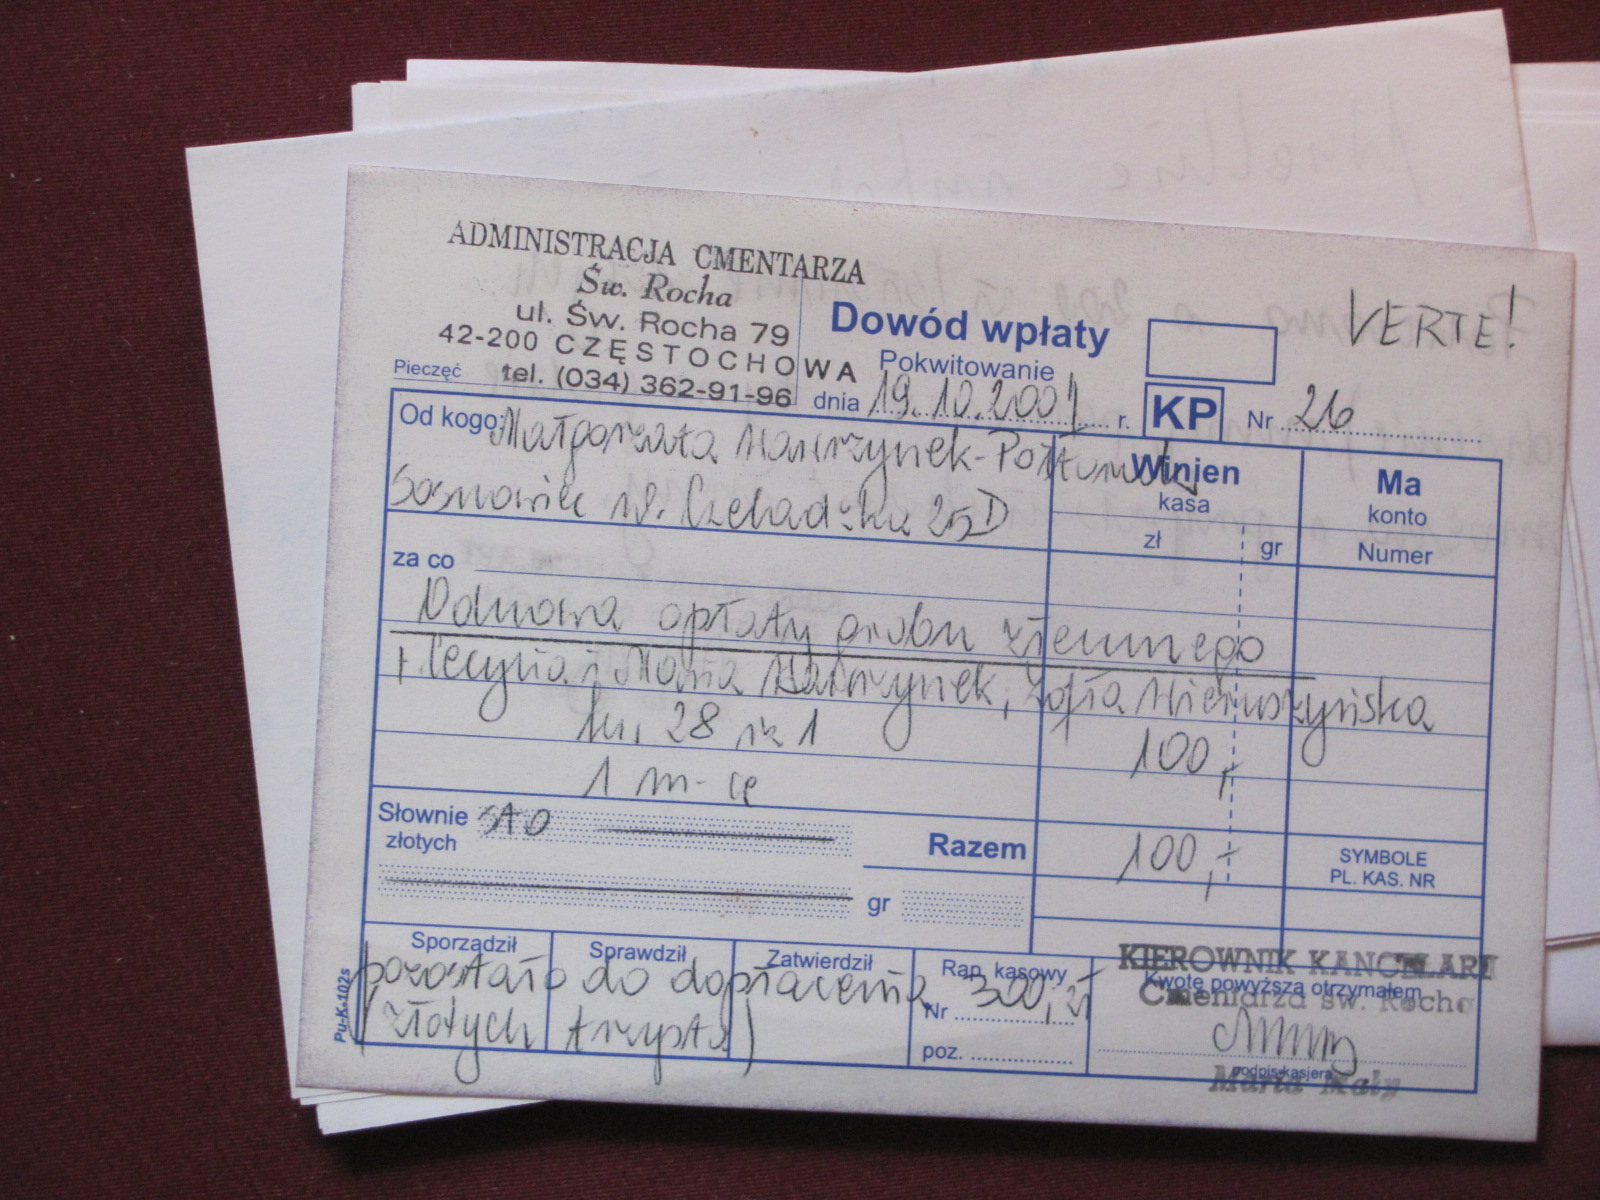 ADMINISTRACJA CMENTARZA
Św. Rocha
ul. Św. Rocha 79
42-200 CZĘSTOCHOWA
Pieczęć tel. (034) 362-91-96
Dowód wpłaty
Pokwitowanie
dnia 19.10.2001 r.
VERTE!
KP Nr 26
Od kogo: Małgorzata
Sosnowiec ul. Czeladzka 25D
Winien
kasa
zł gr
Ma
konto
Numer
za co
Odnowa opłaty grobu ziemnego
i Maria Mawrzynek, Zofia
kw. 28 nr 1 100,-
1 m-ce
Słownie sto
złotych
Razem 100,-
gr
SYMBOLE
PL. KAS. NR
Sporządził Sprawdził Zatwierdził Rap. kasowy
pozostało do dopłacenia 300,zł
(złotych trzysta)
Nr
poz.
KIEROWNIK KANCELARI
Kwotę powyższą otrzymałem
Cmentarza św. Rocha
podpis kasjera
Maria Mały
Pu-K-102s